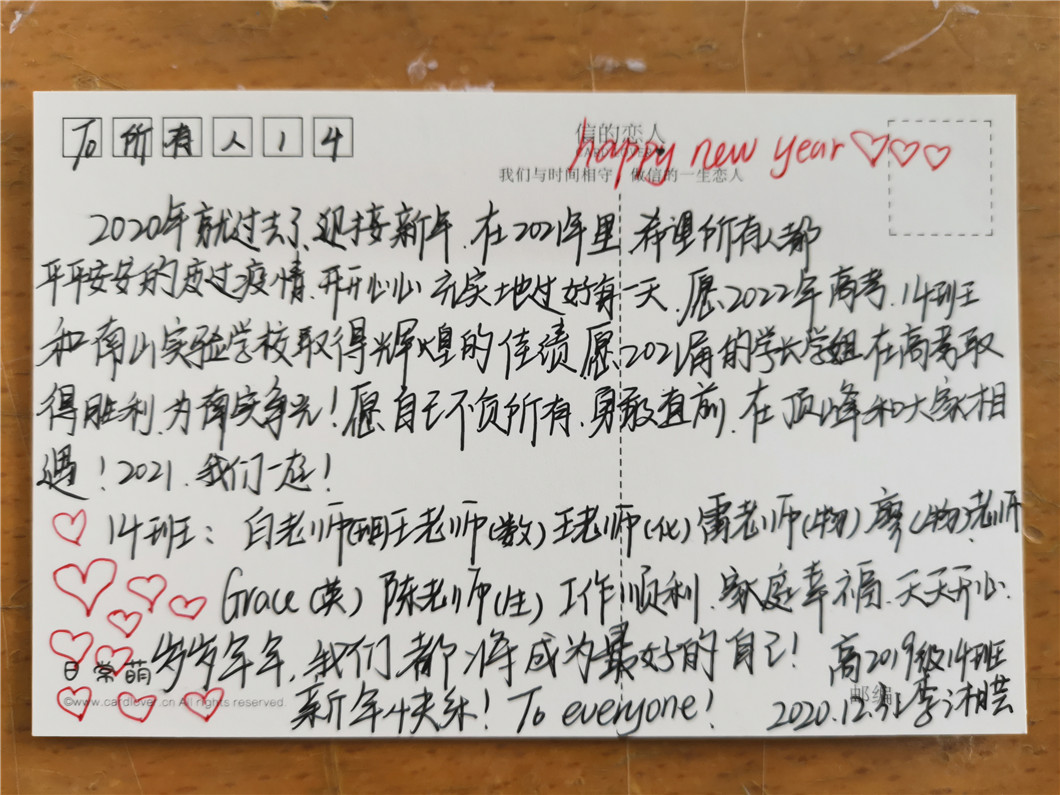 To 所有人 1 4
信的恋人
happy new year
我们与时间相守 做信的一生恋人
2020年就过去了,迎接新年.在2021年里 希望所有人都
平平安安的度过疫情.开开心心 充实地过好每一天.愿2022年高考.14班
和南山实验学校取得辉煌的佳绩 愿2021届的学长学姐在高考取
得胜利.为南实争光!愿自己不负所有.勇敢直前.在顶峰和大家相
遇!2021.我们一起!
14班: 白老师(班)王老师(数)王老师(化)雷老师(物)廖(物)老师
Grace(英) 陈老师(生) 工作顺利.家庭幸福.天天开心.
岁岁年年,我们都将成为最好的自己! 高2019级14班
日常萌
新年快乐! To everyone! 2020.12.31 李湘芸
©www.cardlover.cn All rights reserved.
邮编